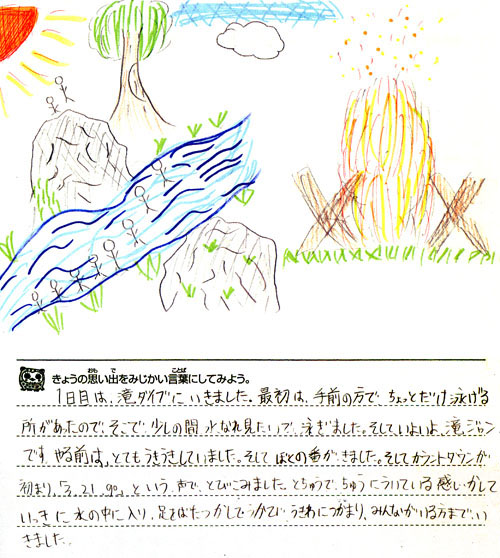 きょうの思い出をみじかい言葉にしてみよう。
1日目は、滝ダイブにいきました。最初は、手前の方で、ちょっとだけ泳げる
所があたので、そこで、少しの間、水なれ見たいで、泳ぎました。そして、いよいよ、滝ジャン
です。やる前は、とてもうきうきしていました。そして ぼくの番がきました。そしてカウントダウンが
初まり、という声で、とびこみました。とちゅうで、ちゅうにういている感じがして
いっきに水の中に入り、足をばたつかしてうかび、うきわにつかまり、みんながいる方まで、い
きました。